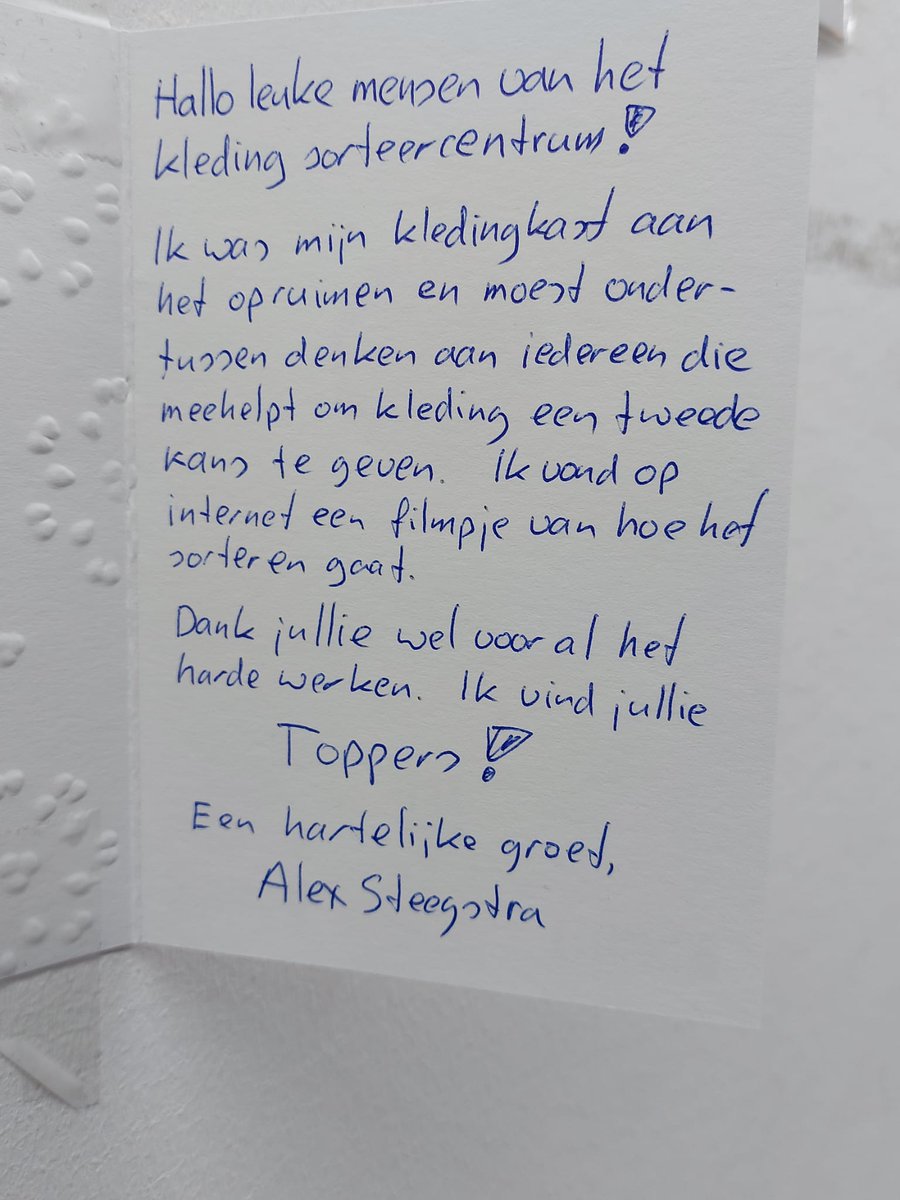 Hallo leuke mensen van het
kleding sorteercentrum!
Ik was mijn kledingkast aan
het opruimen en moest onder-
tussen denken aan iedereen die
meehelpt om kleding een tweede
kans te geven. Ik vond op
internet een filmpje van hoe het
sorteren gaat.
Dank jullie wel voor al het
harde werken. Ik vind jullie
Toppers!
Een hartelijke groet,
Alex Steegstra